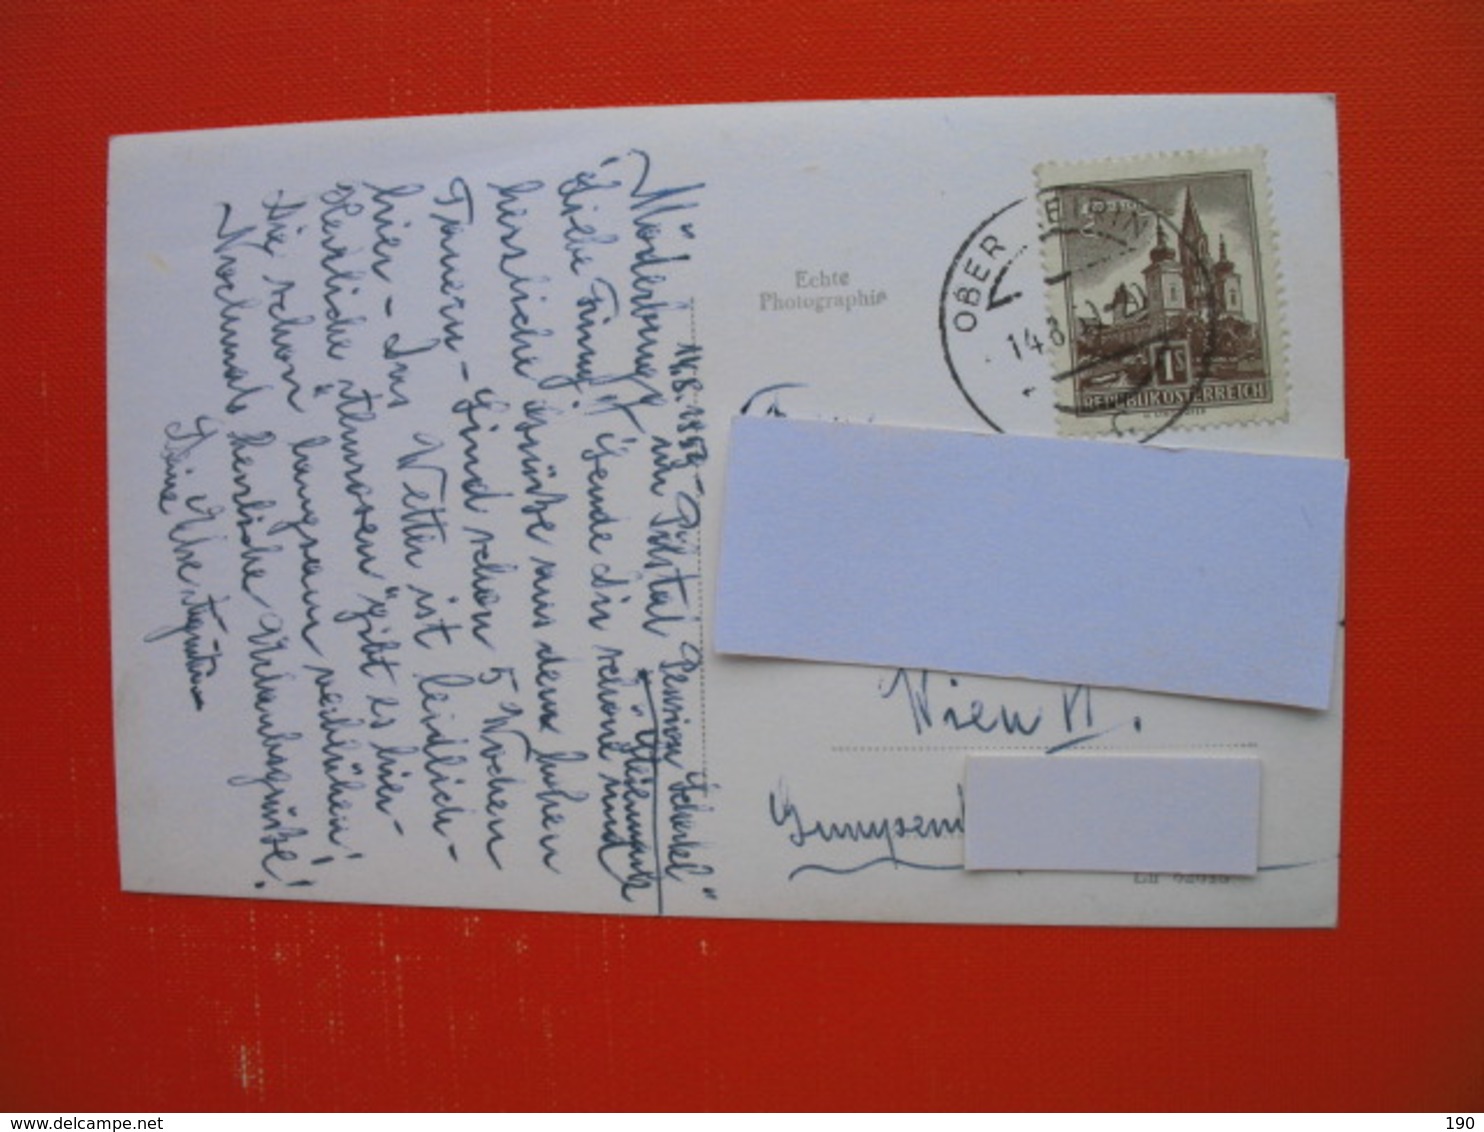 14.8.1959
Mörtelbauer im Pölstal Pension Schenkel"
Liebe Finny! Sende Dir schöne und
herzliche Grüße aus dem hohen
Tauern - Sind schon 5 Wochen
hier - Das Wetter ist leidlich -
Herrliche Almrosen gibt es hier -
die schon langsam verblühen!
Nochmals herzliche Urlaubsgrüße!
Deine
Echte
Photographie
OBER ZEIRING
14.8.
1S
REPUBLIK ÖSTERREICH
Wien VI.
Gumpend
delcampe.net
190